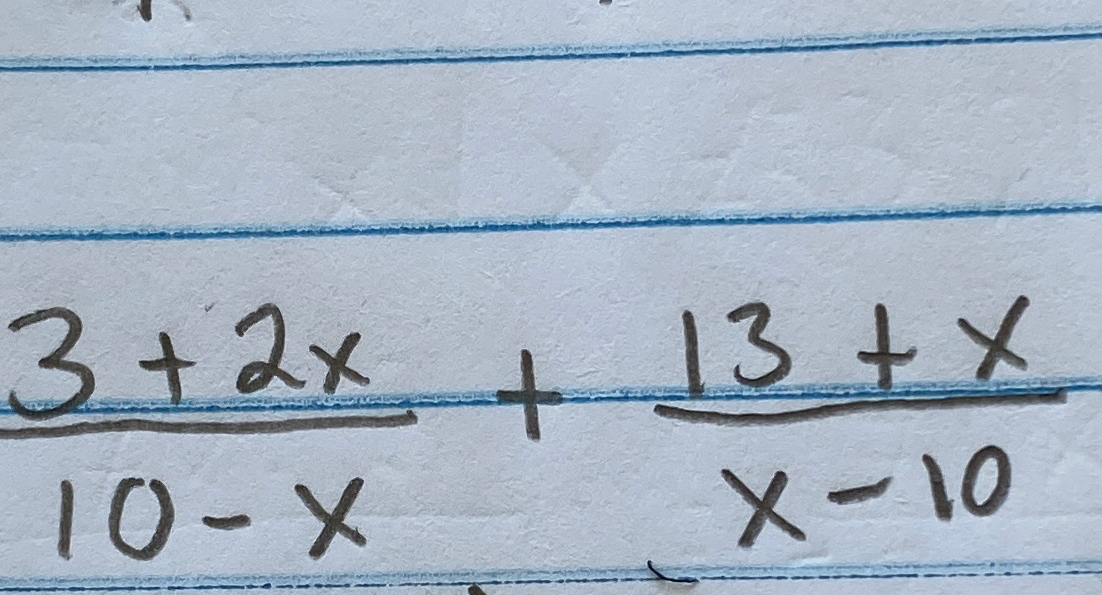 3 + 2x + 13 + x
10 - x x - 10